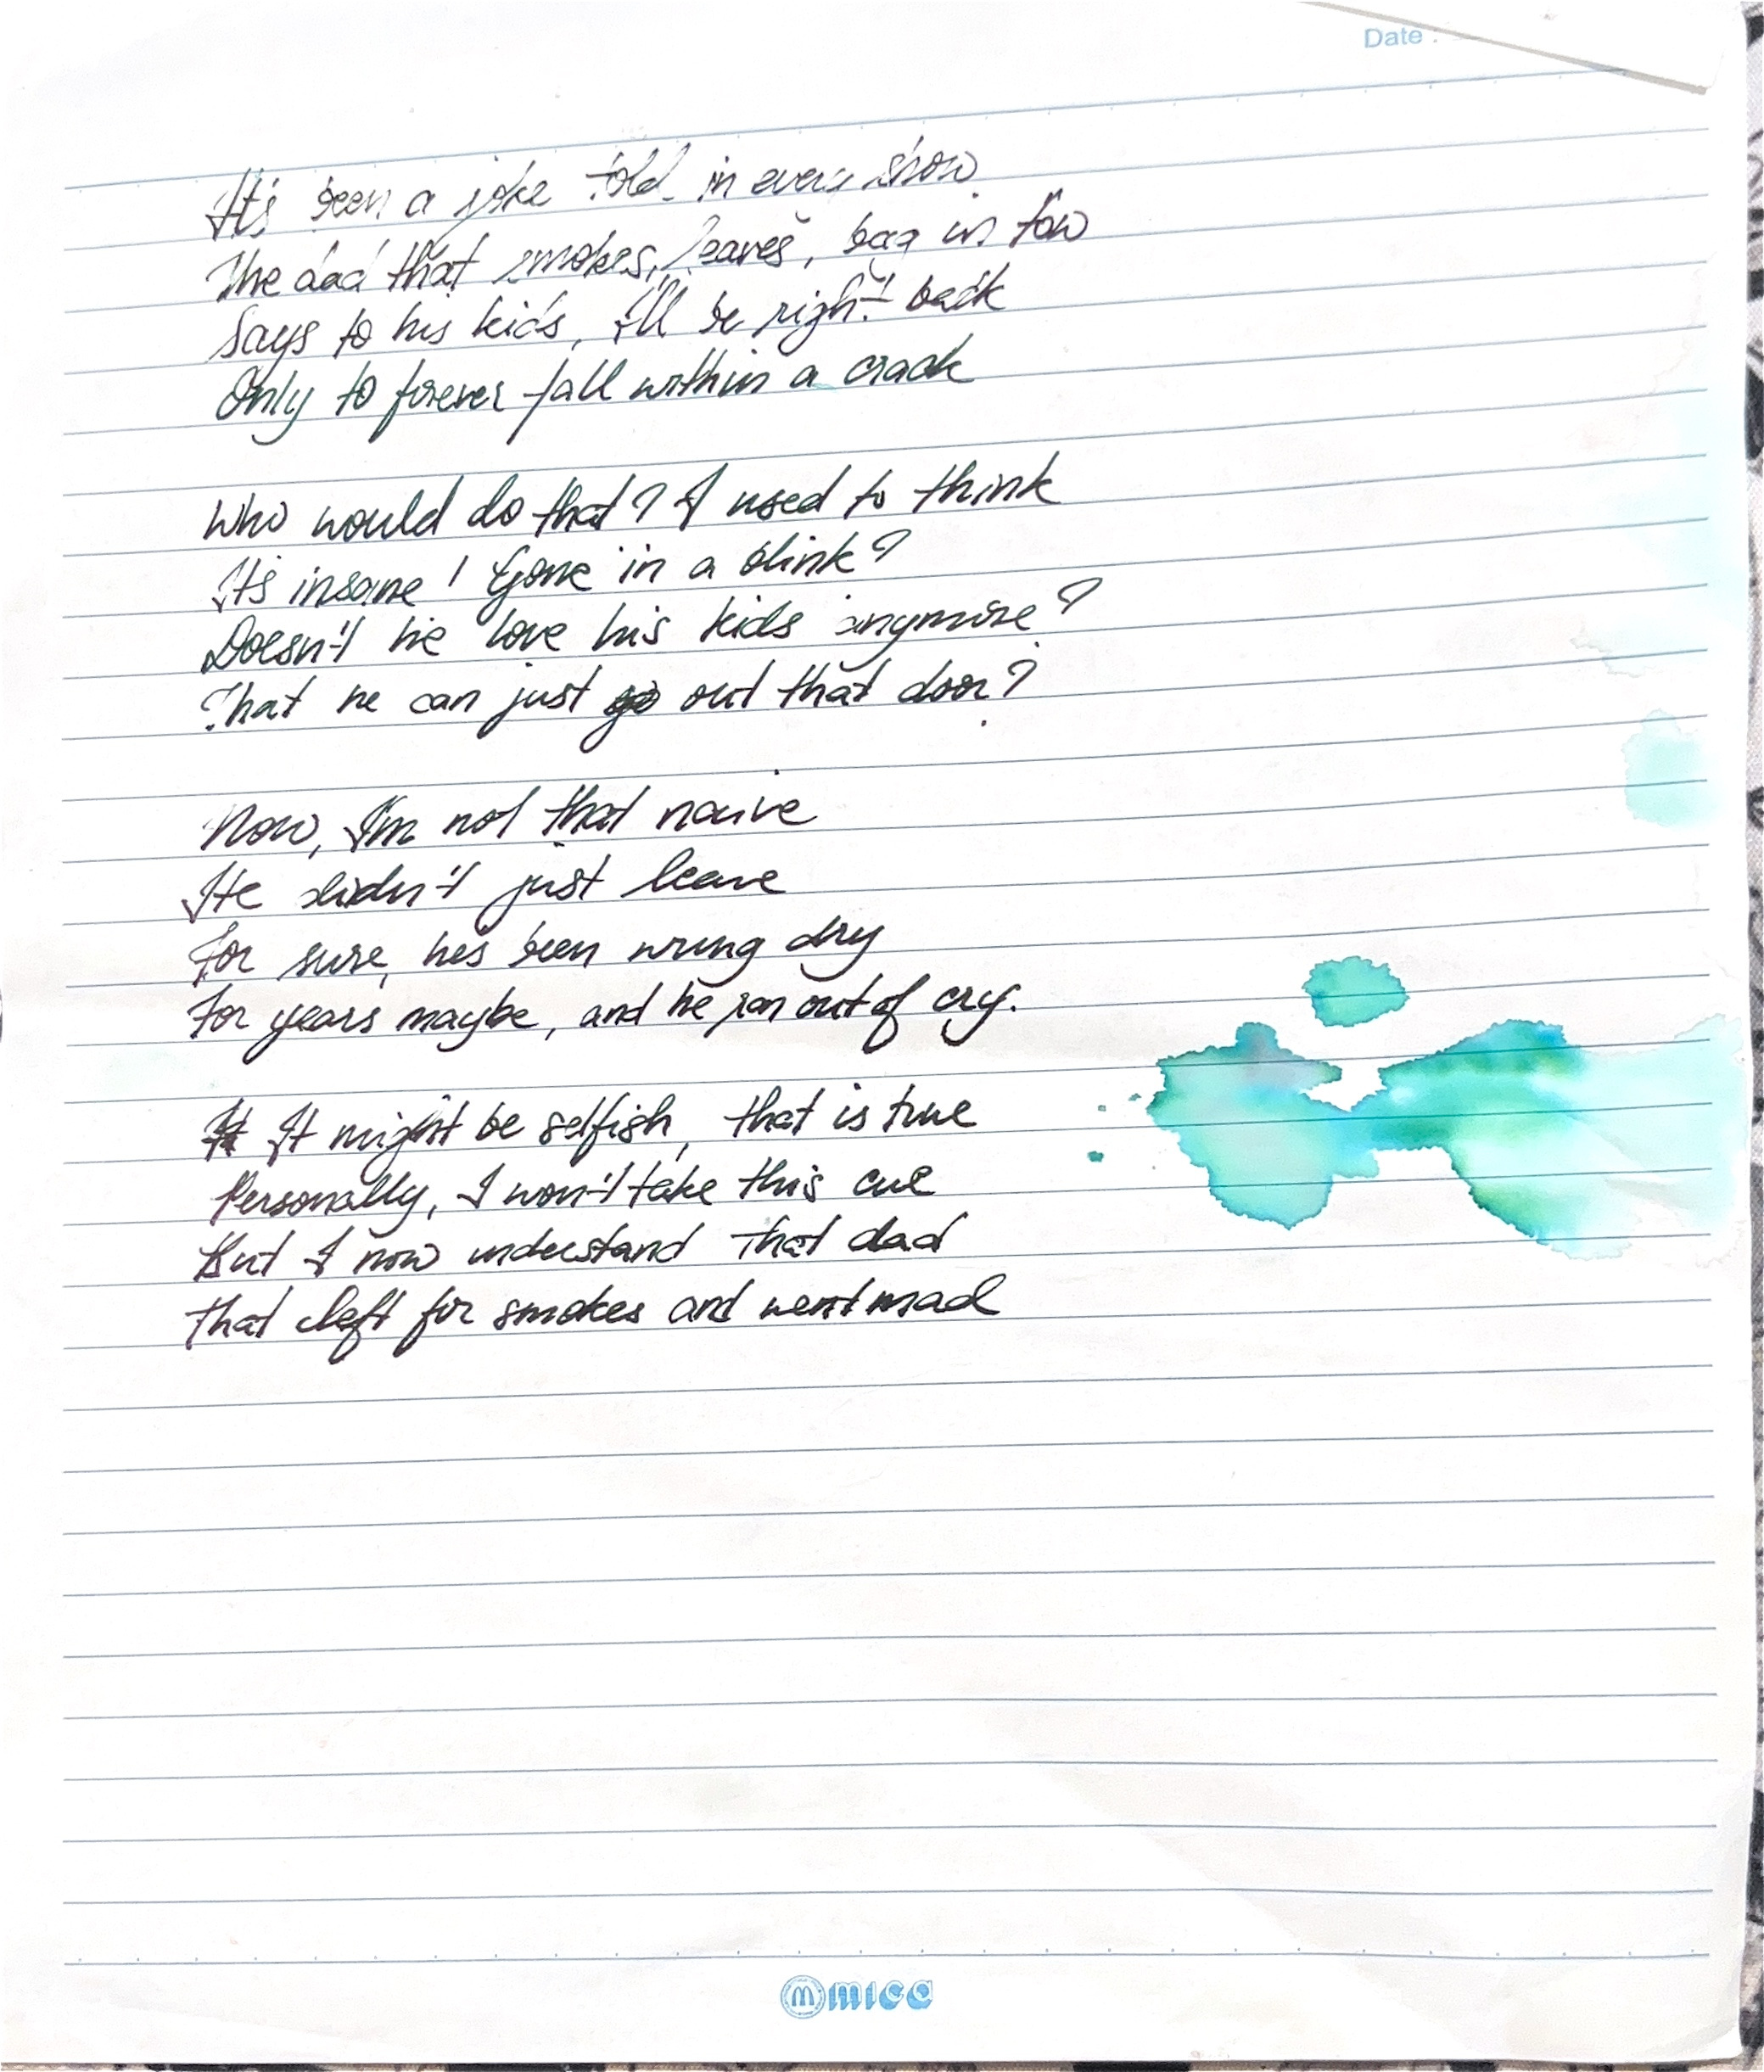 Date :
It's been a joke told in every show
The dad that smokes, leaves, bag in tow
Says to his kids, I'll be right back
Only to forever fall within a crack
Who would do that? I used to think
It's insane! Gone in a blink?
Doesn't he love his kids anymore?
That he can just go out that door?
Now, I'm not that naive
He didn't just leave
For sure, hes been wrung dry
For years maybe, and he ran out of cry.
It might be selfish, that is true
Personally, I won't take this cue
But I now understand that dad
that left for smokes and went mad
mica